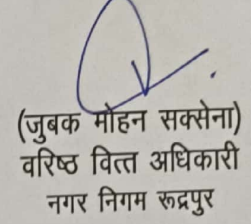 (जुबक मोहन सक्सेना)
वरिष्ठ वित्त अधिकारी
नगर निगम रूद्रपुर